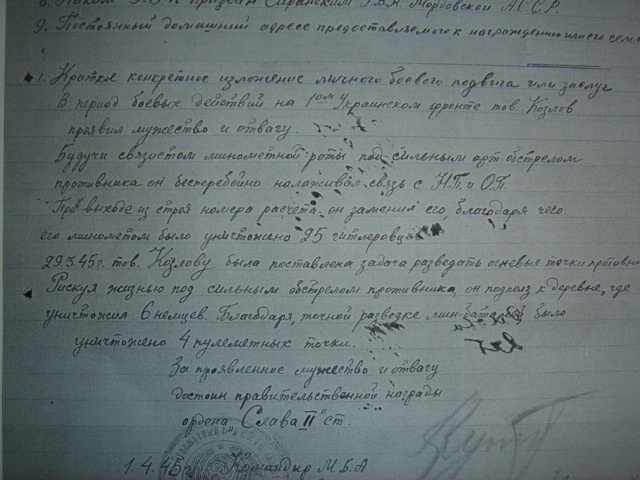 8. Каким Р.В.К призван Саранским Р.В.К. Мордовской А.С.С.Р.
9. Постоянный домашний адрес предоставляемого к награждению или его семьи
1. Краткое конкретное изложение личного боевого подвига или заслуг
В период боевых действий на 1ом Украинском фронте тов. Козлов
проявил мужество и отвагу.
Будучи связистом минометной роты под сильным арт. обстрелом
противника он бесперебойно налаживал связь с Н.П. и О.П.
При выходе из строя номера расчета он заменил его, благодаря чего
его минометом было уничтожено 25 гитлеровца
29.3.45г. тов. Козлову была поставлена задача разведать огневые точки противни
Рискуя жизнью под сильным обстрелом противника, он подполз к деревне, где
уничтожил 6 немцев. Благодаря, точной разведке мин. было
уничтожено 4 пулеметных точки.
За проявленное мужество и отвагу
достоин правительственной награды
ордена "Слава II" ст.
1.4.45г. Командир М.Б.А